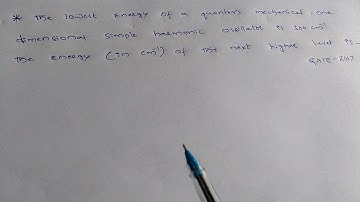 * The lowest energy of a quantum mechanical one
dimensional simple harmonic oscillator is 300 cm⁻¹.
The energy (in cm⁻¹) of the next higher level is -
GATE-2017